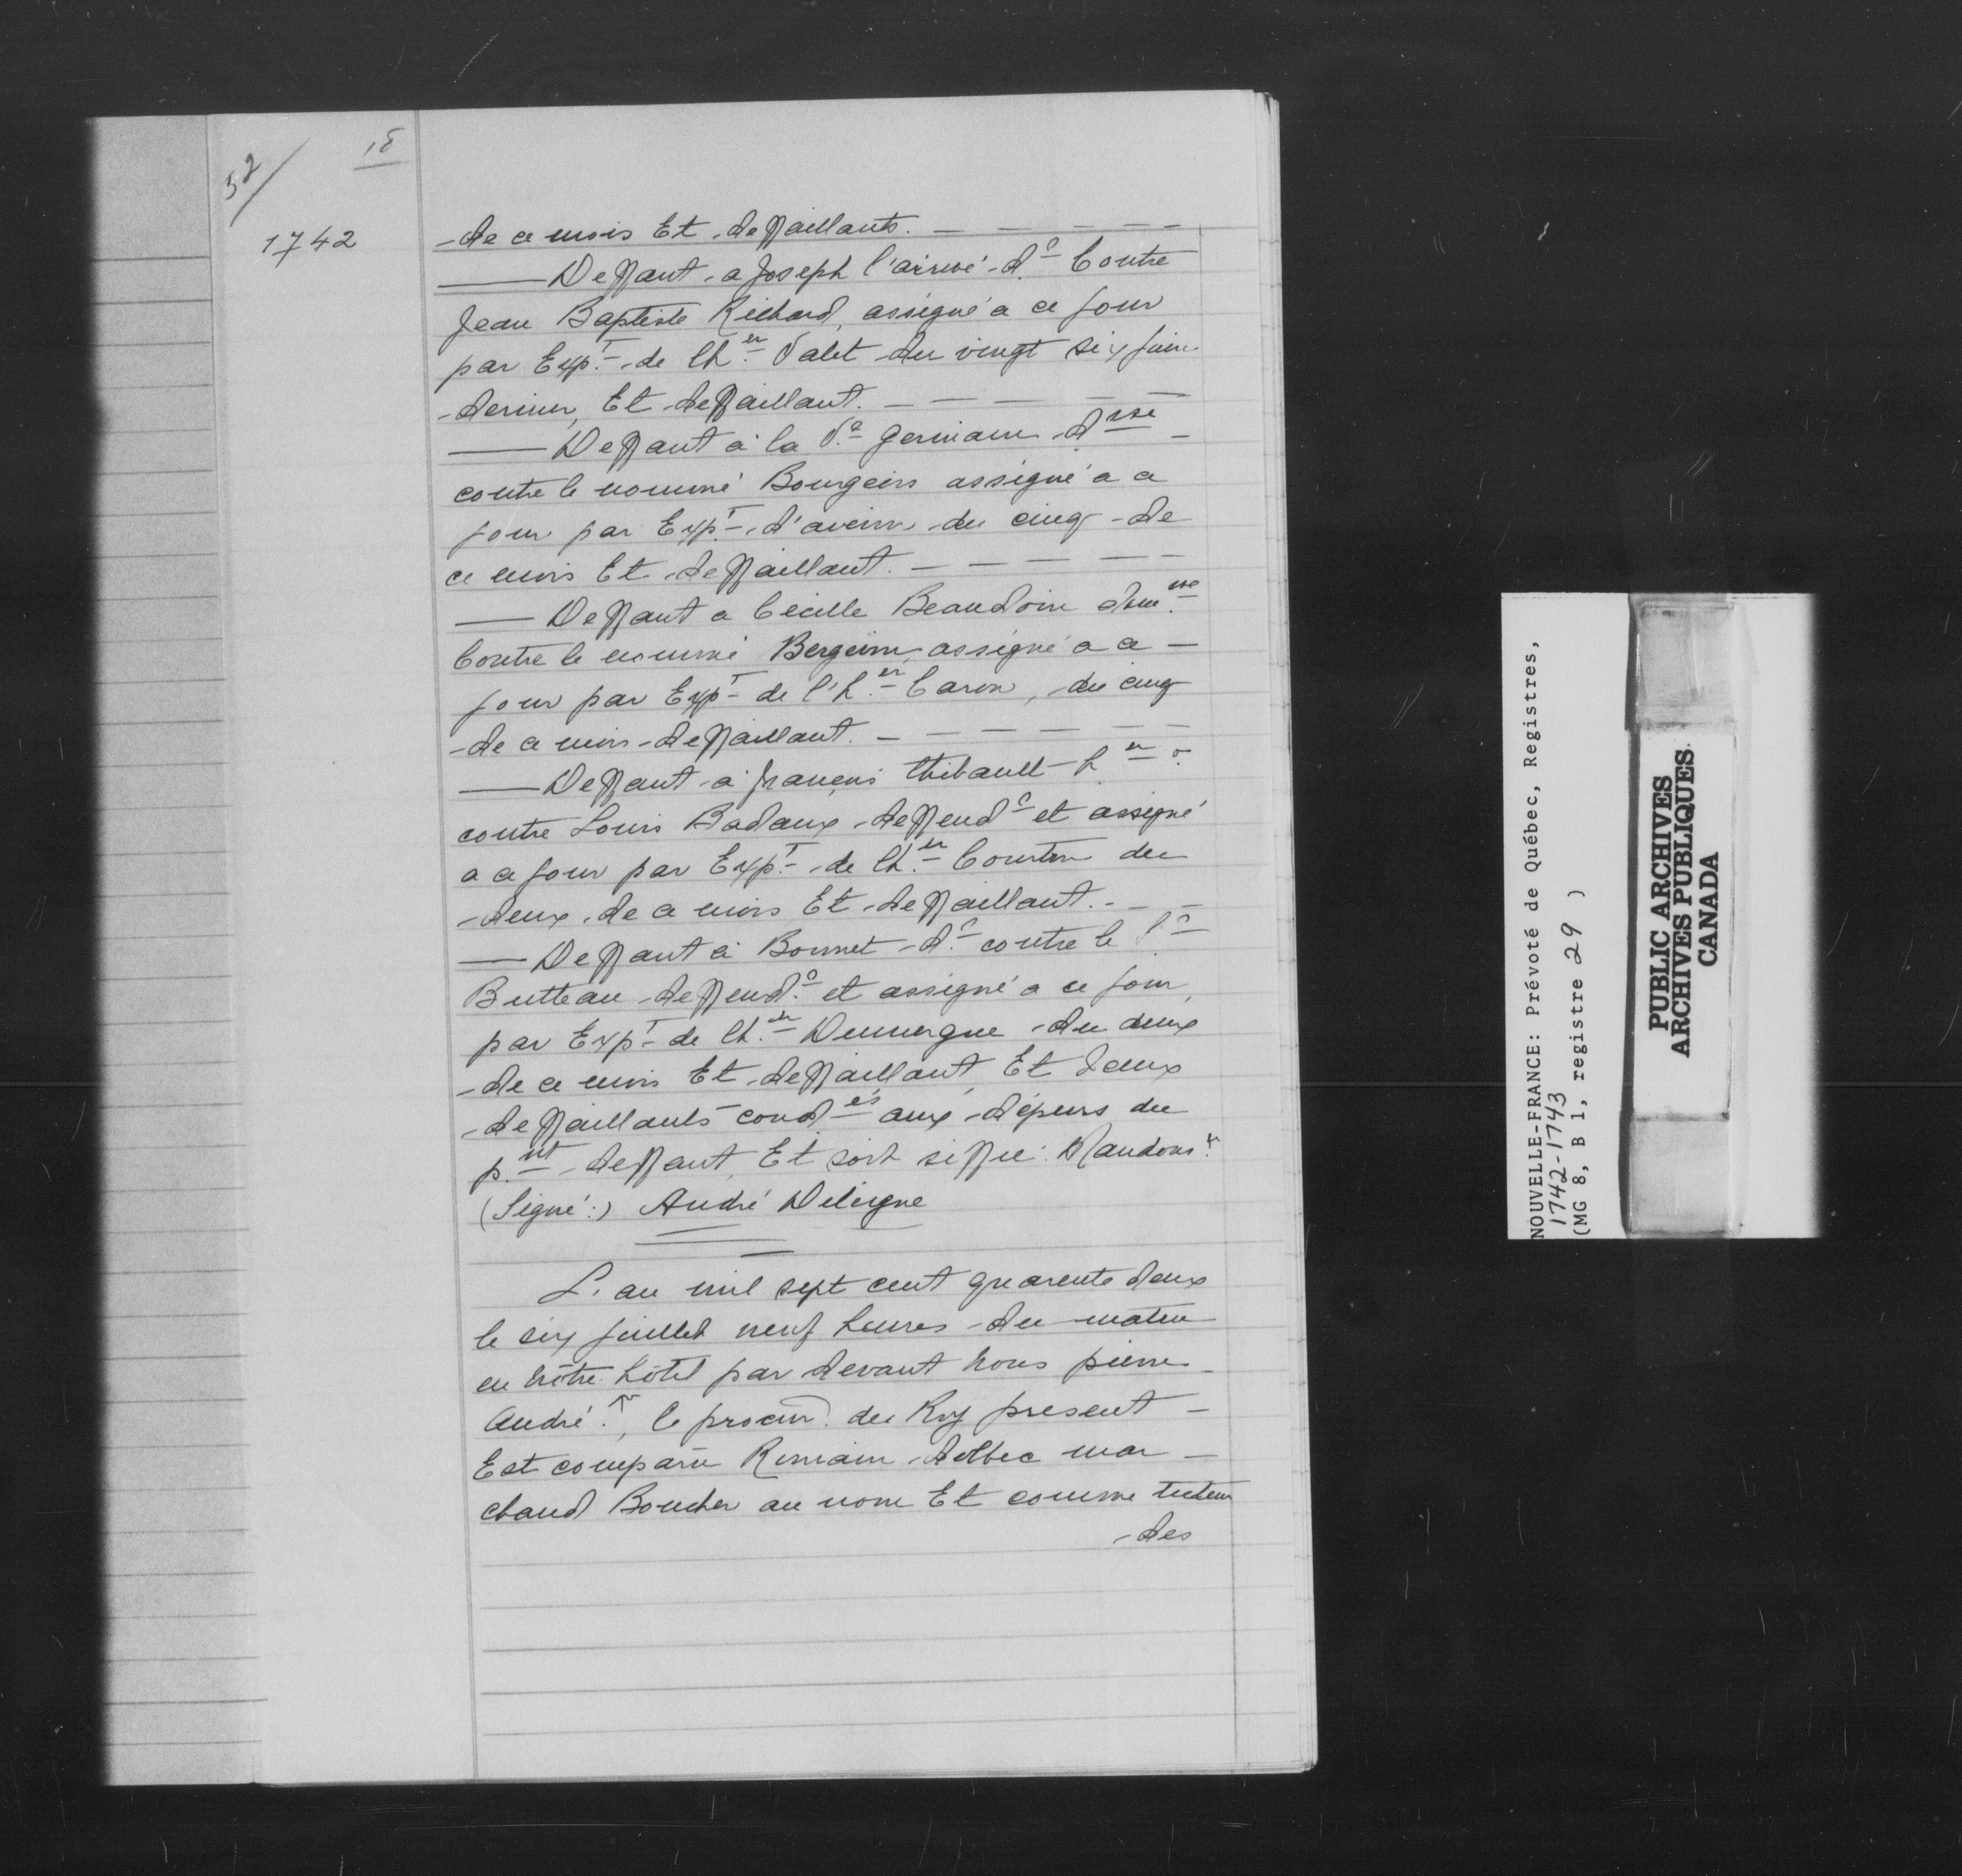 52/
18
1742
de ce mois Et deffaillants. — — — — —
—— Deffaut a Joseph l'arrivé d.^r Contre
Jean Baptiste Richard, assigné a ce jour
par Exp.^t de lh.^er Valet du vingt six juin
dernier, Et deffaillant. — — — — —
—— Deffaut à la V.^e germain d^rsse —
contre le nommé Bourgeois assigné a ce
jour par Exp.^t d'aveine du cinq de
ce mois Et deffaillant. — — — — —
—— Deffaut a Cécille Beaudoin dem.^sse
Contre le nommé Bergevin assigné a ce —
jour par Exp.^t de l'h.^er Caron, du cinq
de ce mois deffaillant. — — — — —
—— Deffaut a françois thibault h.^er
contre Louis Badaux deffend^r et assigné
a ce jour par Exp.^t de lh.^er Courtin du
deux de ce mois Et deffaillant. - — —
—— Deffaut à Bonnet d.^r contre le S^r
Butteau deffend.^r et assigné a ce jour,
par Exp.^t de lh.^er Demergue du deux
de ce mois Et deffaillant, Et deux
deffaillants cond^és aux dépens du
p.^nt deffaut, Et soit siffié. Mandons.^r
(Signé:) André Deleigne
L'an mil sept cent quarente deux
le six juillet neuf heures du matin
en nôtre hôtel par devant nous pierre
André.^r, le procur. du Roy present —
Est comparu Romain dolbec mar —
chand Boucher au nom Et comme tuteur
des
NOUVELLE-FRANCE: Prévoté de Québec, Registres,
1742-1743
(MG 8, B 1, registre 29 )
PUBLIC ARCHIVES
ARCHIVES PUBLIQUES
CANADA